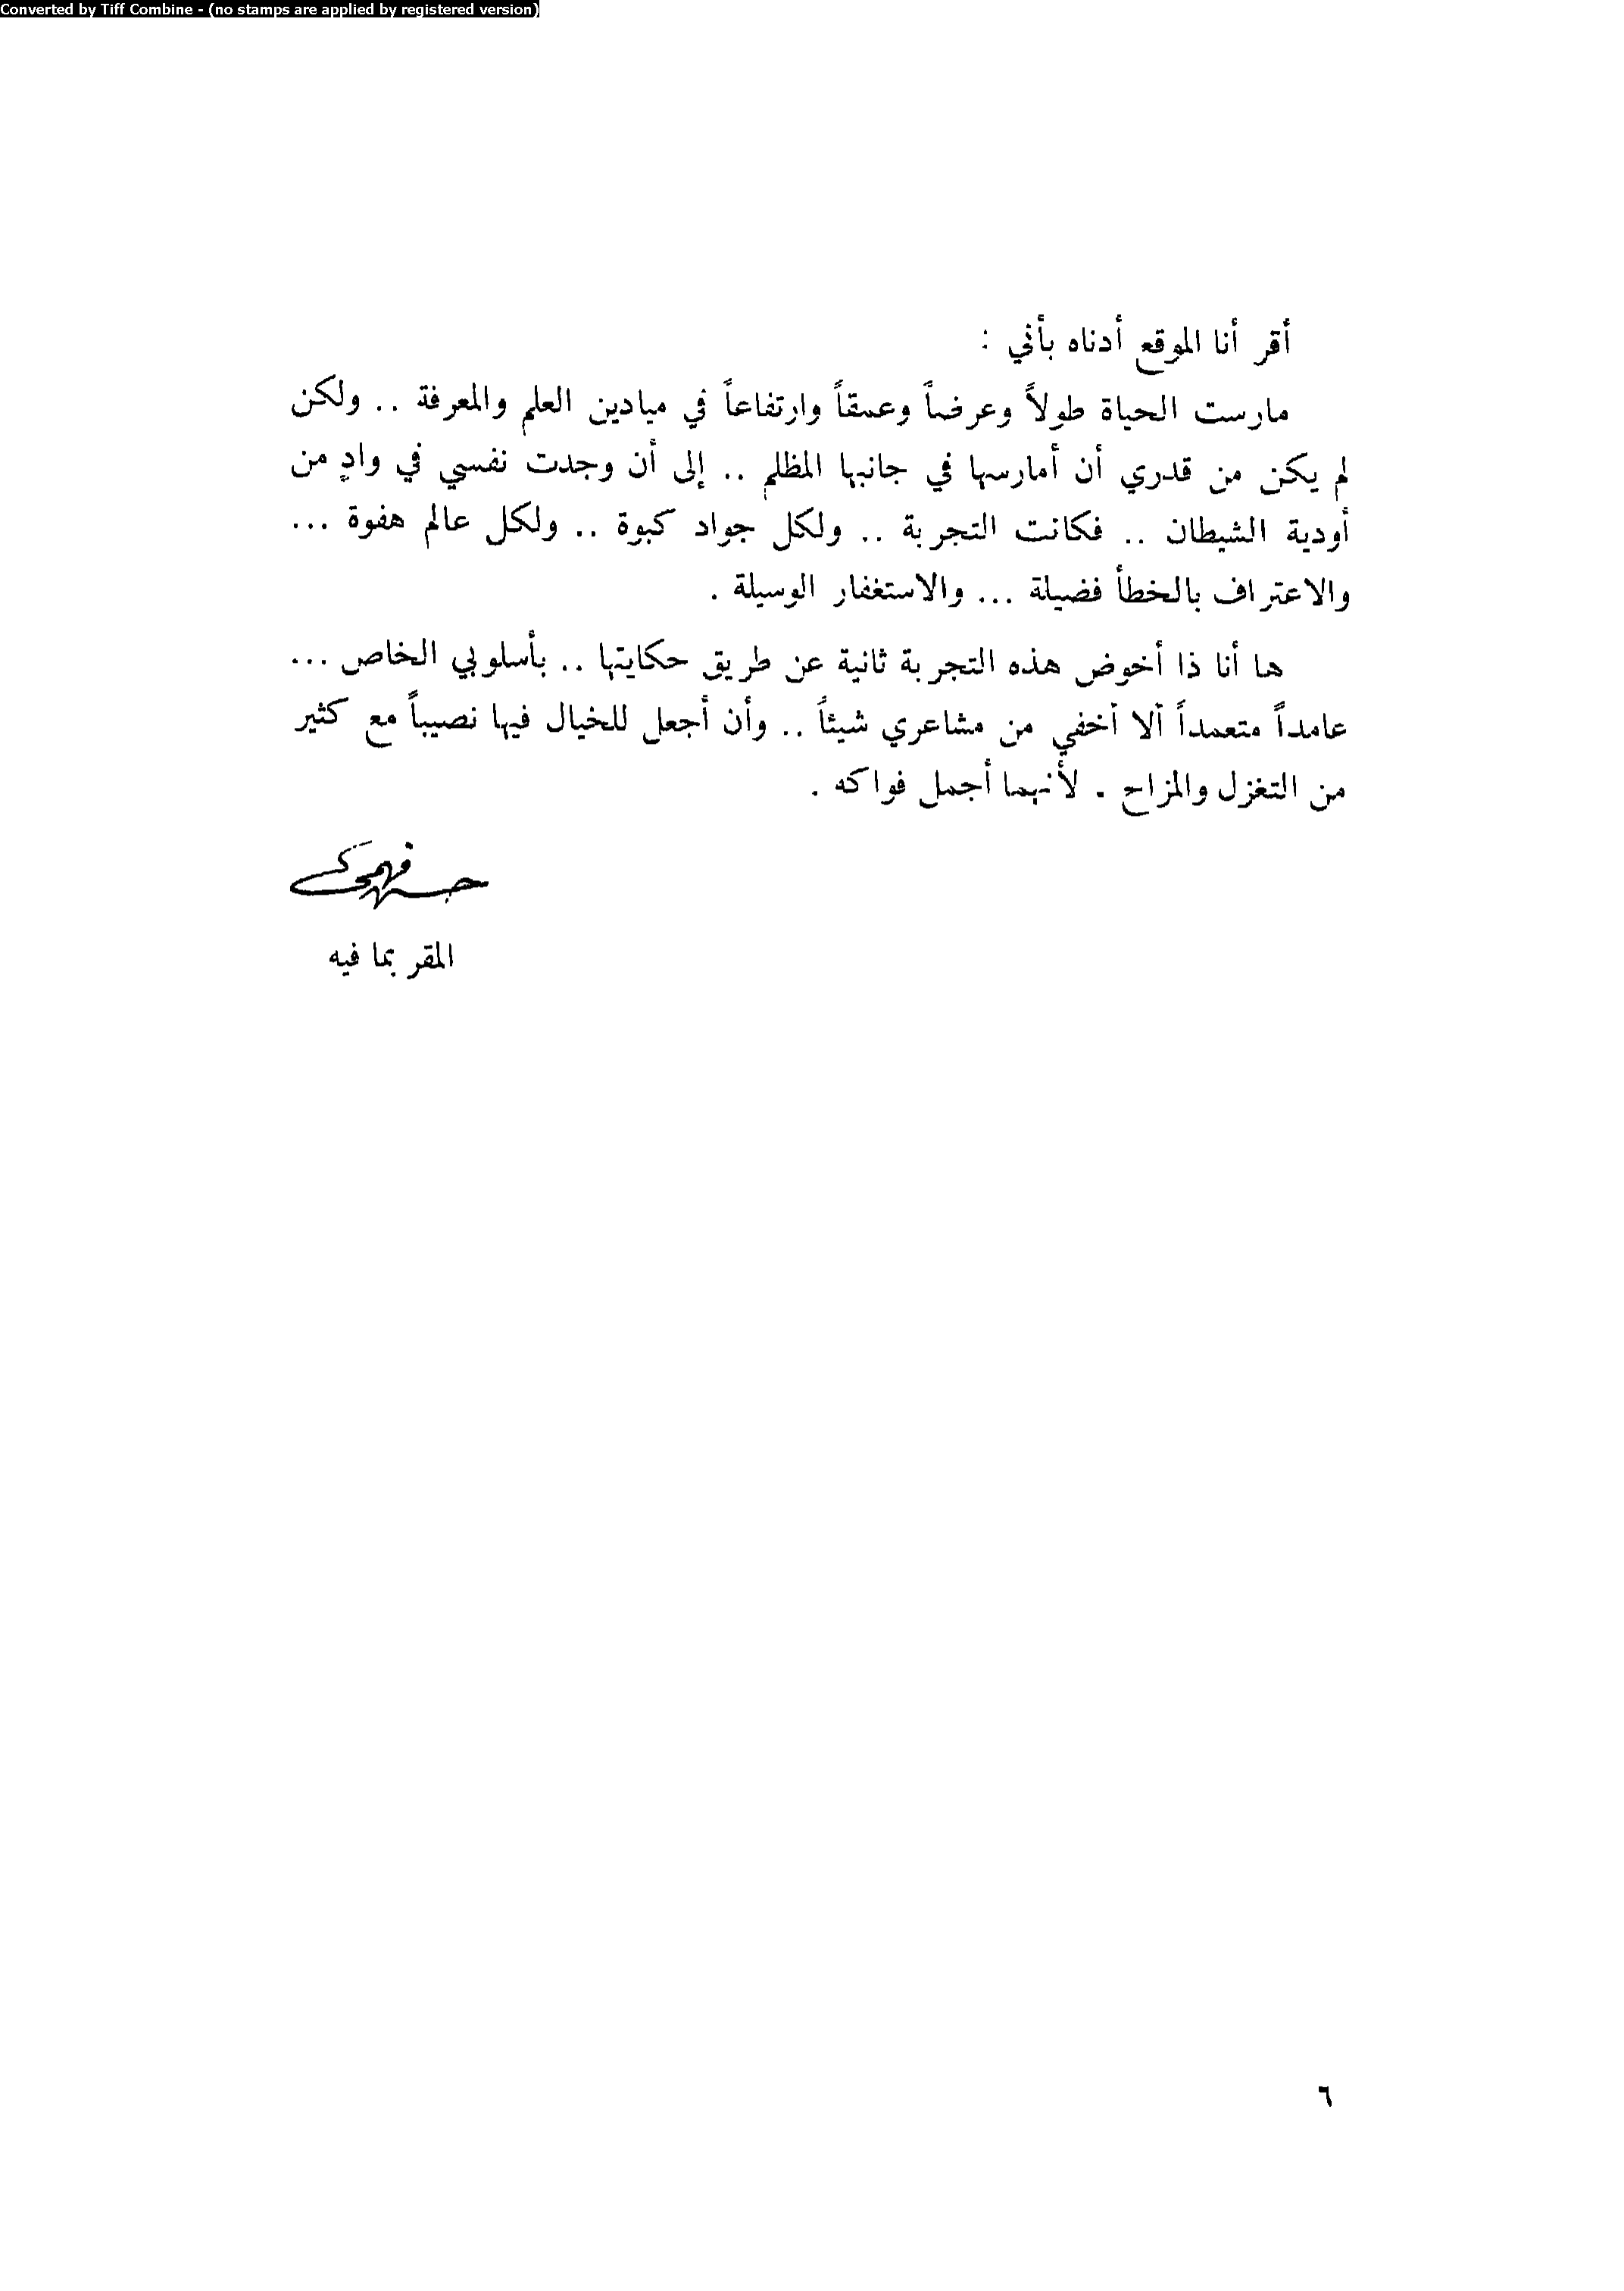 Converted by Tiff Combine - (no stamps are applied by registered version)
أقر أنا الموقع أدناه بأني :
مارست الحياة طولاً وعرضاً وعمقاً وارتفاعاً في ميادين العلم والمعرفة .. ولكن
لم يكن من قدري أن أمارسها في جانبها المظلم .. إلى أن وجدت نفسي في وادٍ من
أودية الشيطان .. فكانت التجربة .. ولكل جواد كبوة .. ولكل عالم هفوة ...
والاعتراف بالخطأ فضيلة ... والاستغفار الوسيلة .
ها أنا ذا أخوض هذه التجربة ثانية عن طريق حكايتها .. بأسلوبي الخاص ...
عامداً متعمداً ألا أخفي من مشاعري شيئاً .. وأن أجعل للخيال فيها نصيباً مع كثير
من التغزل والمزاح . لأنهما أجمل فواكه .
المقر بما فيه
٦